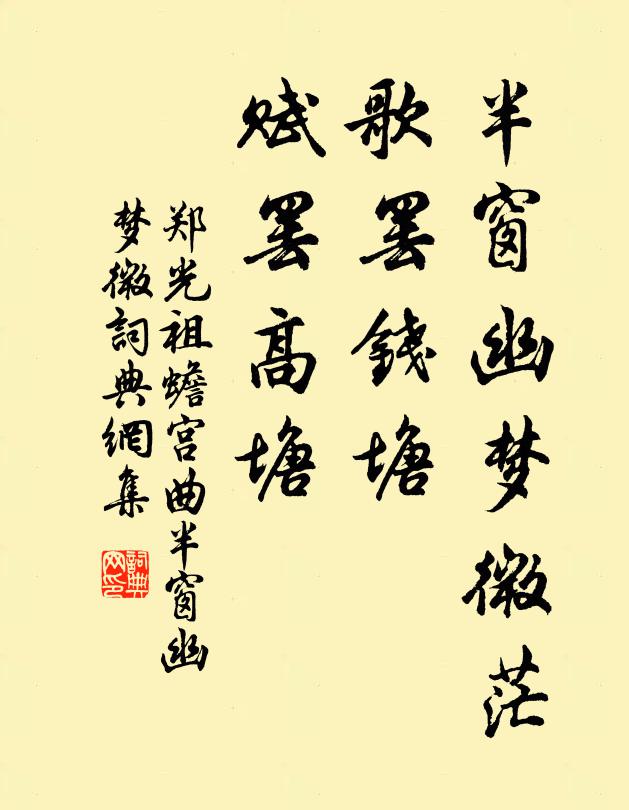 半窗幽梦微茫
歌罢錢塘
赋罢高塘
郑光祖蟾宫曲半窗幽
梦微詞典網集
詞典
网印